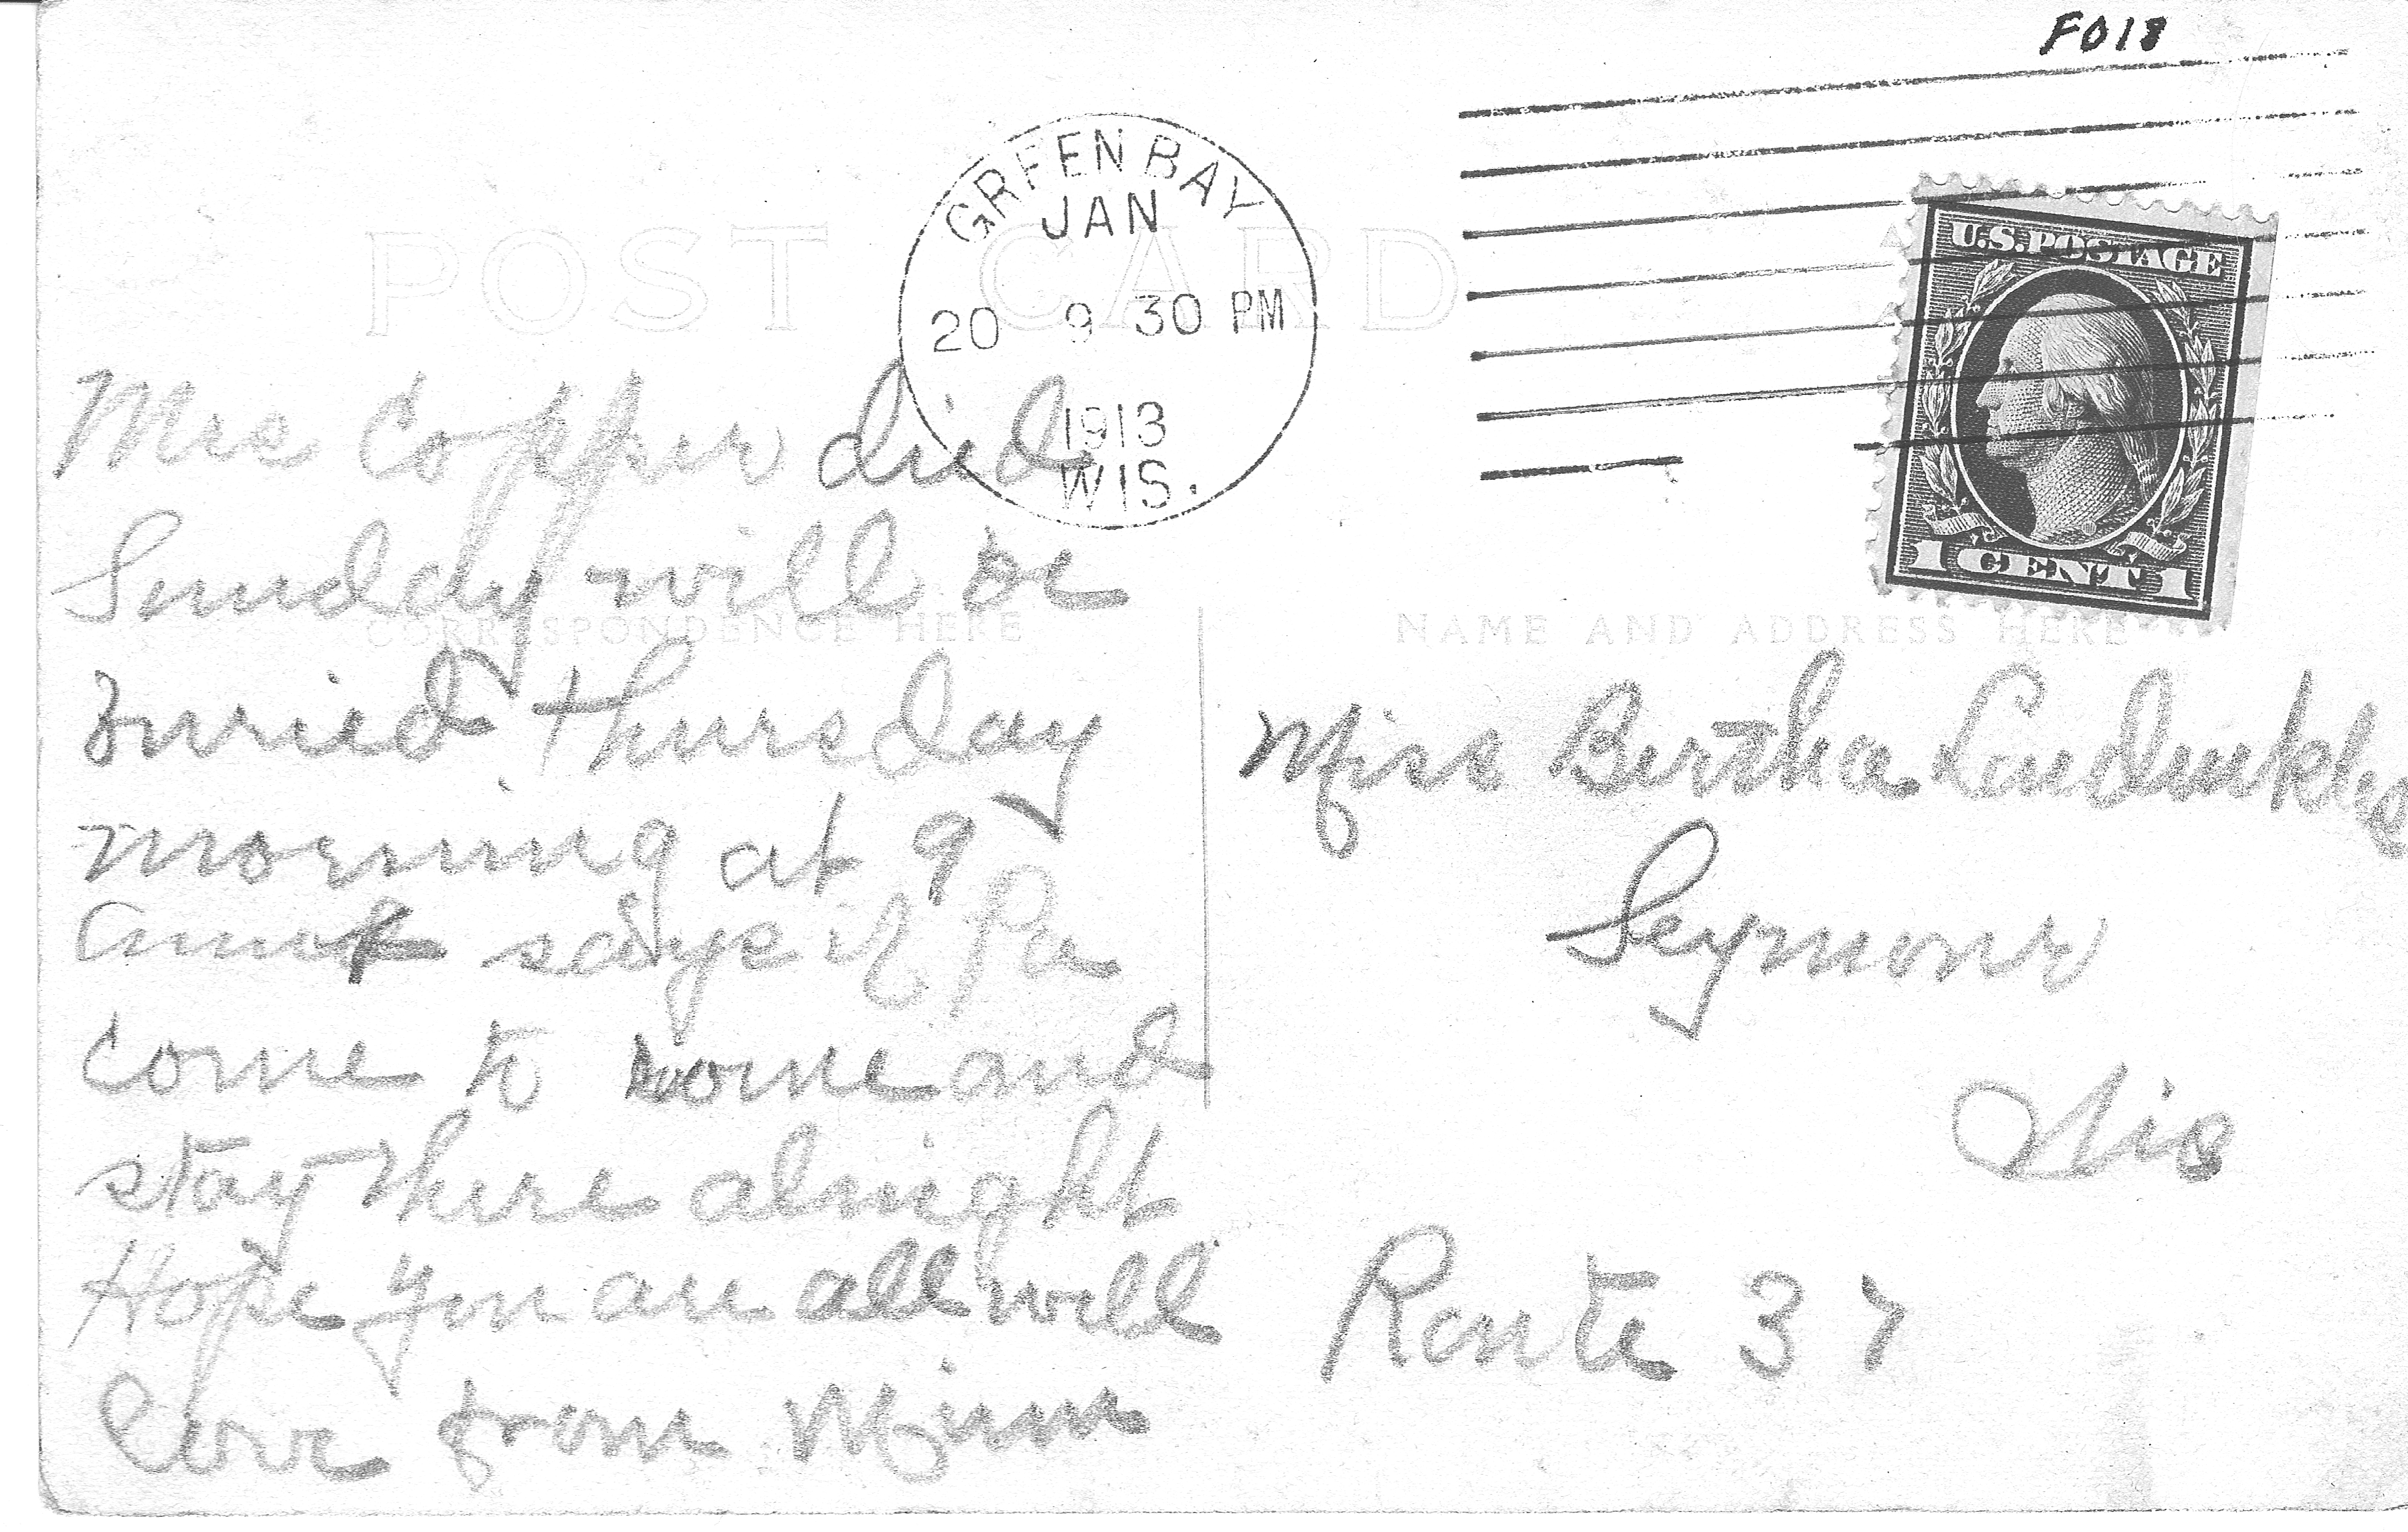 F018
GREEN BAY
JAN
20 9 30 PM
1913
WIS.
U.S. POSTAGE
1 CENT 1
POST CARD
CORRESPONDENCE HERE
NAME AND ADDRESS HERE
Mrs Copper died
Sunday will be
buried Thursday
morning at 9
says if Pa
come to come and
stay there alnight
Hope you are all well
love from Minn
Miss Bertha
Seymour
Wis
Route 37